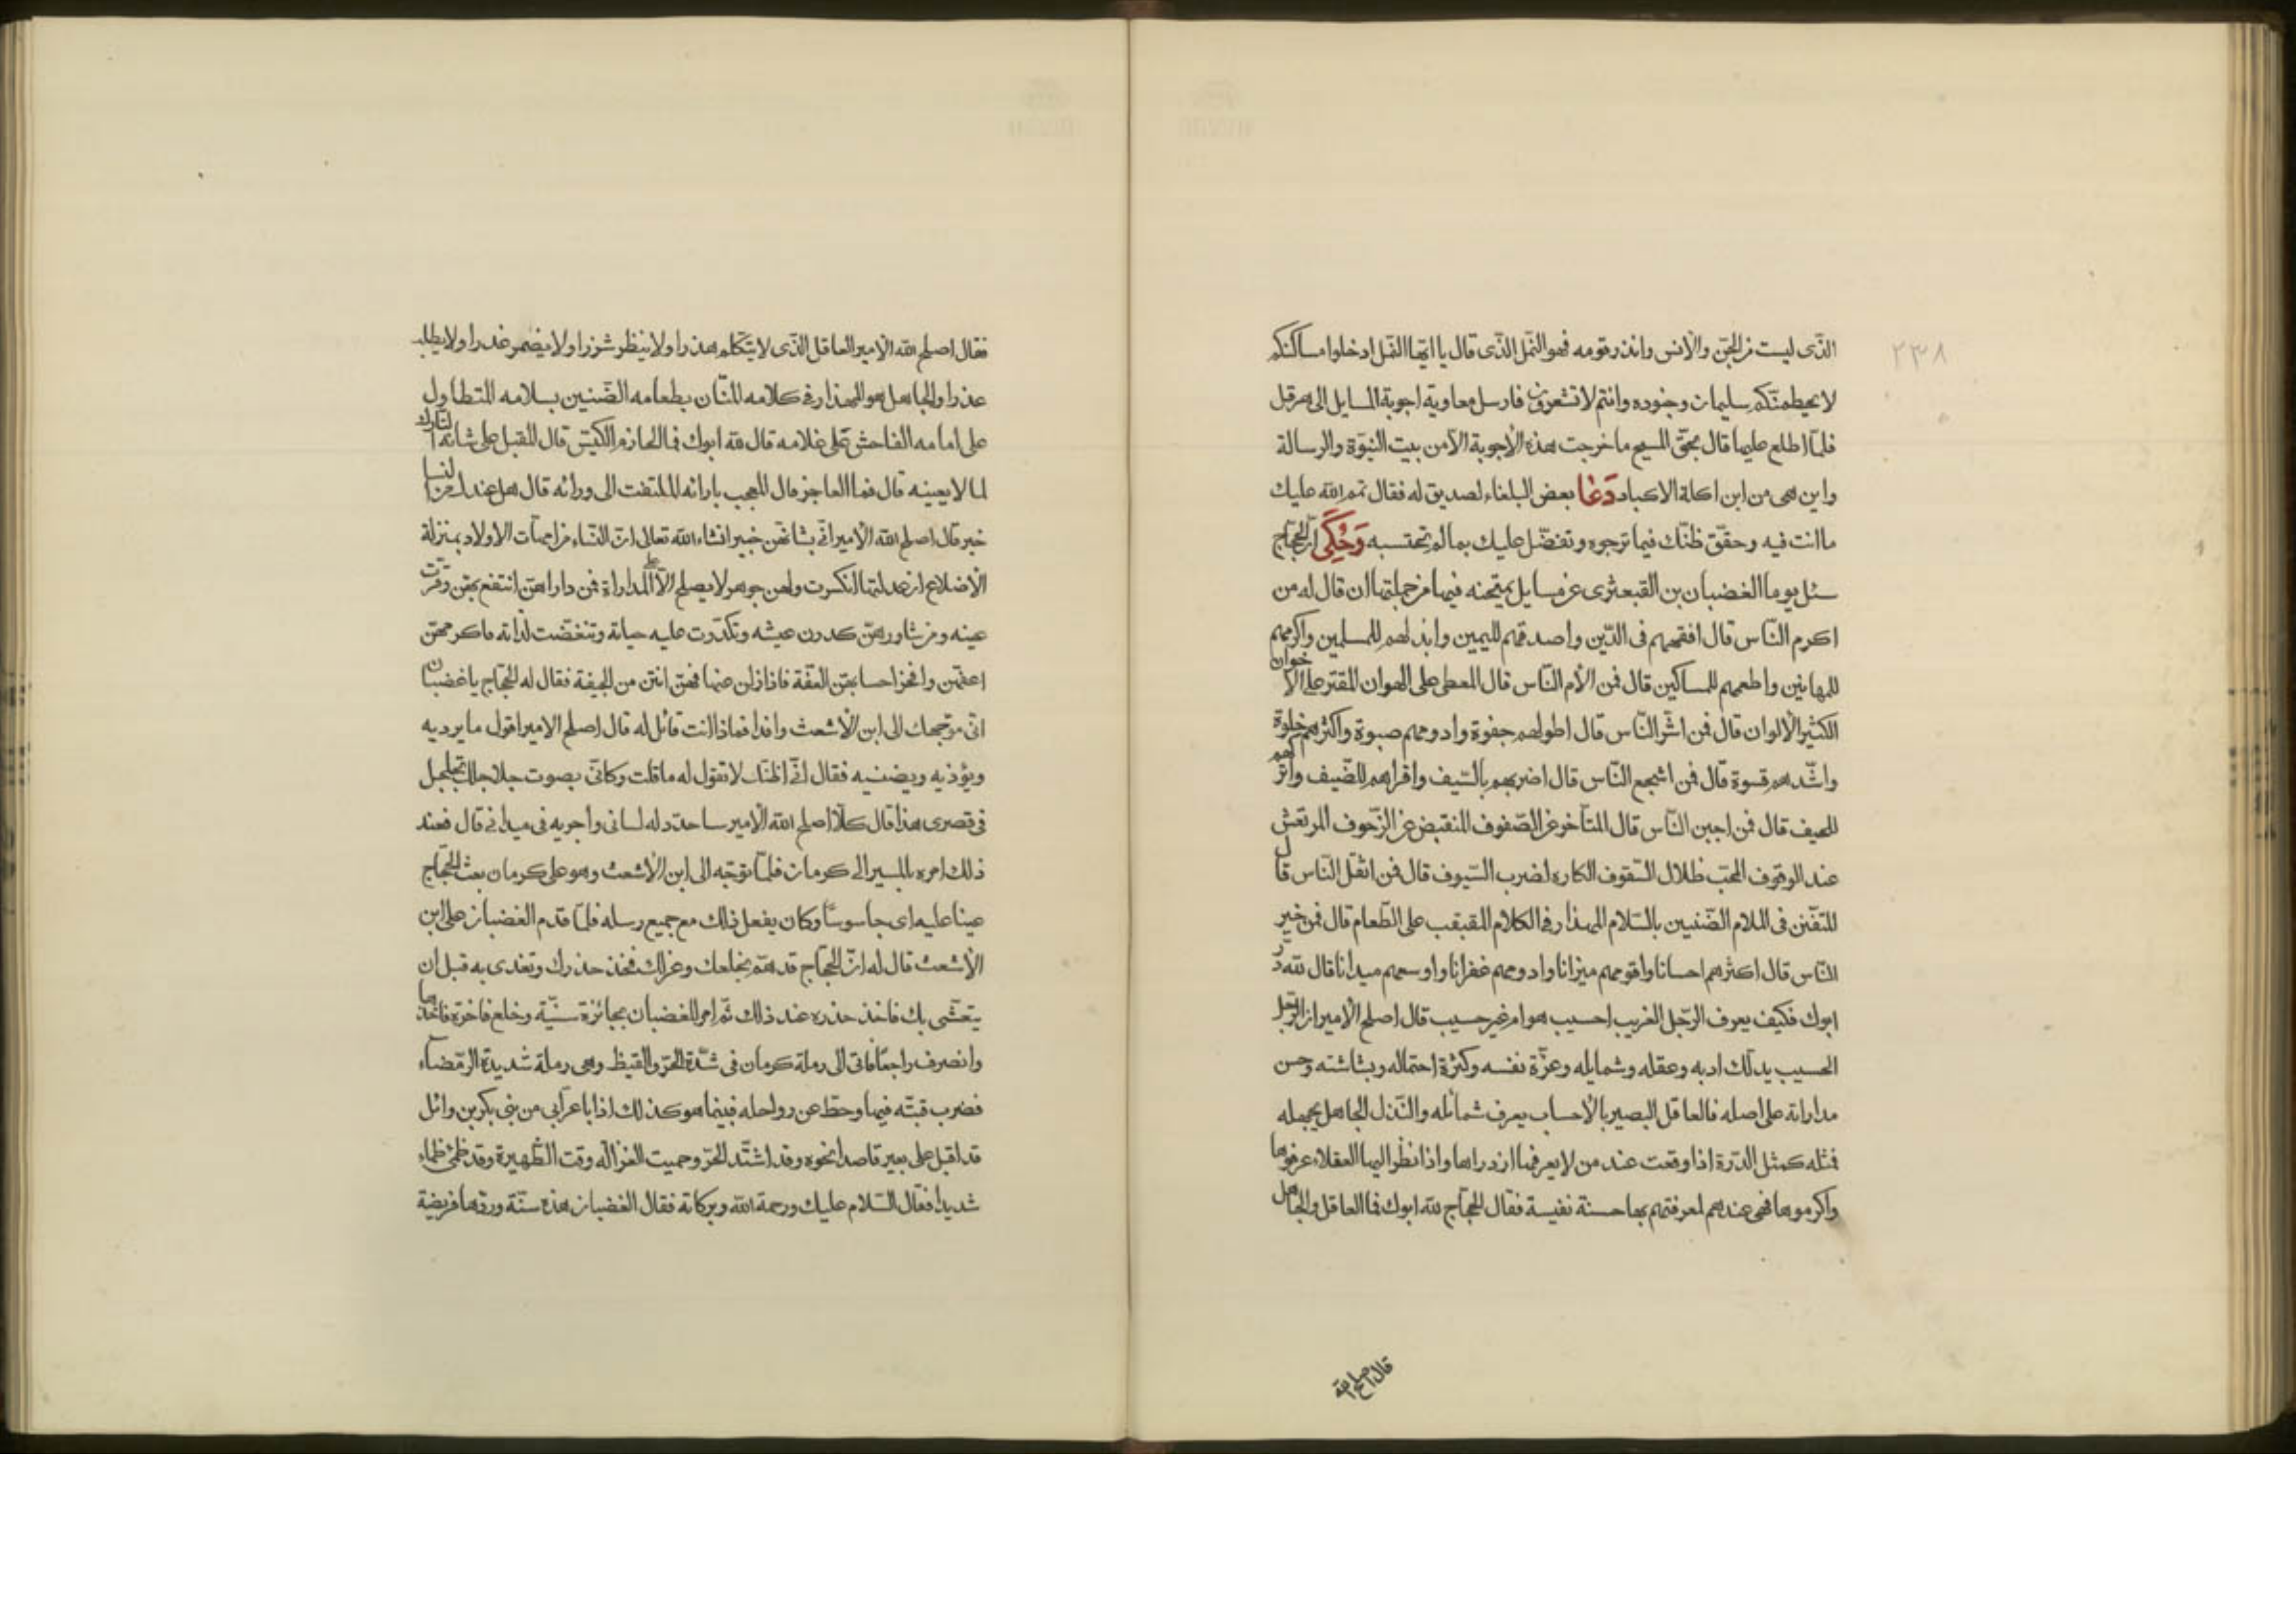 ٢٣٨
الذى ليست من الجن والانس وانذر قومه فهو النمل الذى قال يا ايها النمل ادخلوا مساكنكم
لا يحطمنكم سليمان وجنوده وانتم لا تشعرون فارسل معاوية اجوبة المسايل الى هرقل
فلما اطلع عليها قال بحق المسيح ما خرجت هذه الاجوبة الا من بيت النبوة والرسالة
واين هى من ابن اكلة الاكباد دعا بعض البلغاء لصديق له فقال تمم الله عليك
ما انت فيه وحقق ظنك فيما ترجوه وتفضل عليك بما لم تحتسبه وحكى ان الحجاج
سئل يوما الغضبان بن القبعثرى عن مسايل يمتحنه فيها من جملتها ان قال له من
اكرم الناس قال افقههم فى الدين واصدقهم لليمين وابذلهم للمسلمين واكرمهم
للمهانين واطعمهم للمساكين قال فمن الأم الناس قال المعطى على الهوان المقتر على الاخوان
الكثير الالوان قال فمن اشر الناس قال اطولهم جفوة وادومهم صبوة واكثرهم خلوة
واشدهم قسوة قال فمن اشجع الناس قال اضربهم بالسيف واقراهم للضيف واتركهم
للحيف قال فمن اجبن الناس قال المتاخر عن الصفوف المنقبض عن الزحوف المرتعش
عند الوقوف المحب ظلال السقوف الكاره لضرب السيوف قال فمن اثقل الناس قال
المتفنن فى الملام الضنين بالسلام المهذار فى الكلام المقبقب على الطعام قال فمن خير
الناس قال اكثرهم احسانا واقومهم ميزانا وادومهم غفرانا واوسعهم ميدانا قال لله در
ابوك فكيف يعرف الرجل الغريب احسيب هو ام غير حسيب قال اصلح الامير ان الرجل
الحسيب يدلك ادبه وعقله وشمايله وعزة نفسه وكثرة احتماله وبشاشته وحسن
مداراته على اصله فالعاقل البصير بالاحساب يعرف شمائله والنذل الجاهل يجهله
فمثله كمثل الدرة اذا وقعت عند من لا يعرفها ازدراها واذا نظر اليها العقلاء عرفوها
واكرموها فهى عندهم لمعرفتهم بها حسنة نفيسة فقال الحجاج لله ابوك فما العاقل والجاهل
قال اصلح الله
فقال اصلح الله الامير العاقل الذى لا يتكلم هذرا ولا ينظر شزرا ولا يضمر غدرا ولا يطلب
عذرا والجاهل هو المهذار فى كلامه المنان بطعامه الضنين بسلامه المتطاول
على امامه الفاحش على غلامه قال لله ابوك فما الحازم الكيس قال المقبل على شانه التارك
لما لا يعينه قال فما العاجز قال المعجب بارائه الملتفت الى ورائه قال هل عندك من النسا
خبر قال اصلح الله الامير انى بشانهن خبير انشاء الله تعالى ان النساء من امهات الاولاد بمنزلة
الاضلاع ان عدلتها انكسرت ولهن جوهر لا يصلح الا على المداراة فمن داراهن انتفع بهن وقرت
عينه ومن شاورهن كدرن عيشه وتكدرت عليه حياته وتنغصت لذاته فاكرمهن
اعفهن وافخر احسابهن العفة فاذا زلن عنها فهن انتن من الجيفة فقال له الحجاج يا غضبان
انى موجهك الى ابن الاشعث وافدا فماذا انت قائل له قال اصلح الامير اقول ما يرديه
ويؤذيه ويضنيه فقال انى اظنك لا تقول له ما قلت وكانى بصوت جلاجلك تجلجل
فى قصرى هذا قال كلا اصلح الله الامير ساحدد له لسانى واجريه فى ميدانى قال فعند
ذلك امره بالمسير الى كرمان فلما توجه الى ابن الاشعث وهو على كرمان بعث الحجاج
عينا عليه اى جاسوسا وكان يفعل ذلك مع جميع رسله فلما قدم الغضبان على ابن
الاشعث قال له ان الحجاج قد هم بخلعك وعزلك فخذ حذرك وتغدى به قبل ان
يتعشى بك فاخذ حذره عند ذلك ثم امر للغضبان بجائزة سنية وخلع فاخرة فاخذها
وانصرف راجعا فاتى الى رملة كرمان فى شدة الحر والقيظ وهى رملة شديدة الرمضاء
فضرب قبته فيها وحط عن رواحله فبينما هو كذلك اذا باعرابى من بنى بكر بن وائل
قد اقبل على بعير قاصدا نحوه وقد اشتد الحر وحميت الغزاله وقت الظهيرة وقد ظمئ ظماء
شديدا فقال السلام عليك ورحمة الله وبركاته فقال الغضبان هذه سنة وردها فريضة